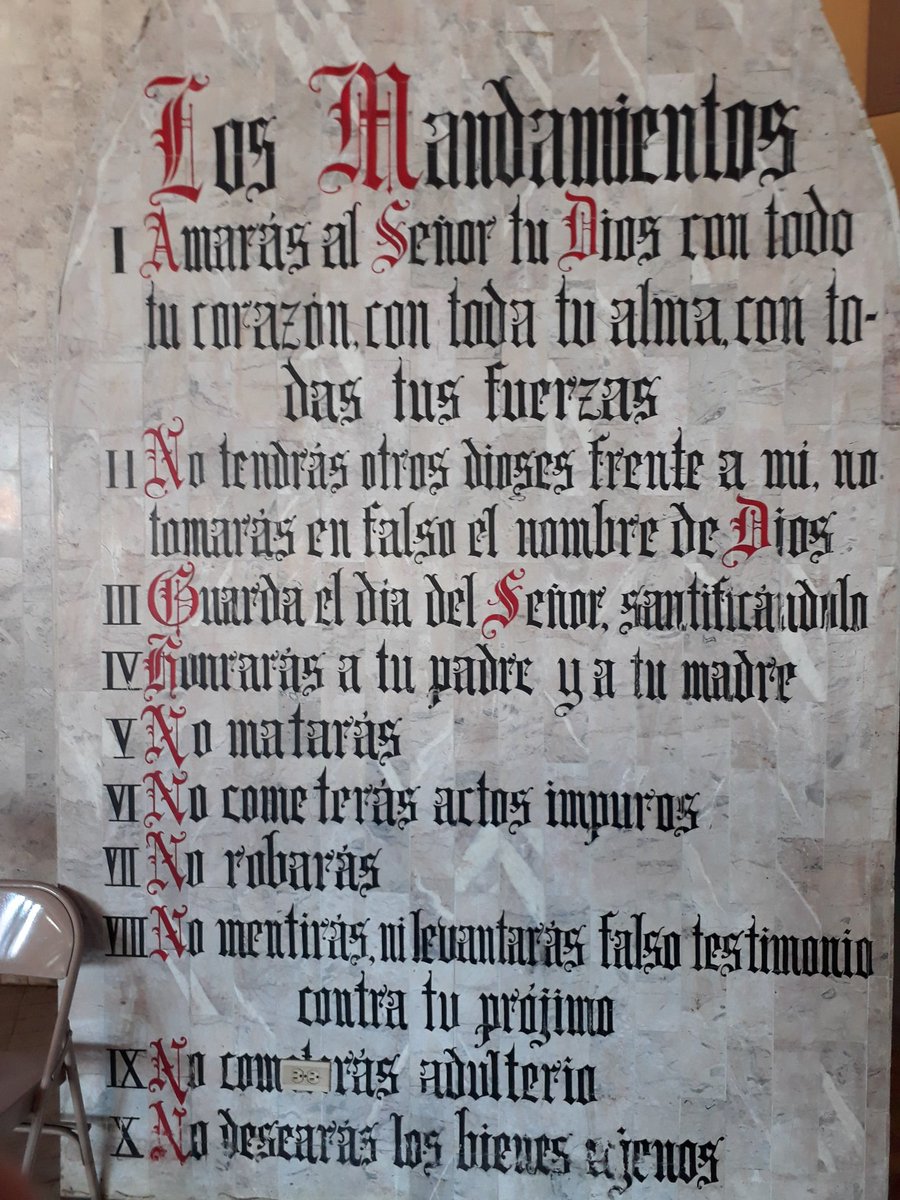 Los Mandamientos
I Amarás al Señor tu Dios con todo
tu corazón, con toda tu alma, con to-
das tus fuerzas
II No tendrás otros dioses frente a mí, no
tomarás en falso el nombre de Dios
III Guarda el día del Señor, santificándolo
IV Honrarás a tu padre y a tu madre
V No matarás
VI No cometerás actos impuros
VII No robarás
VIII No mentirás, ni levantarás falso testimonio
contra tu prójimo
IX No cometerás adulterio
X No desearás los bienes ajenos